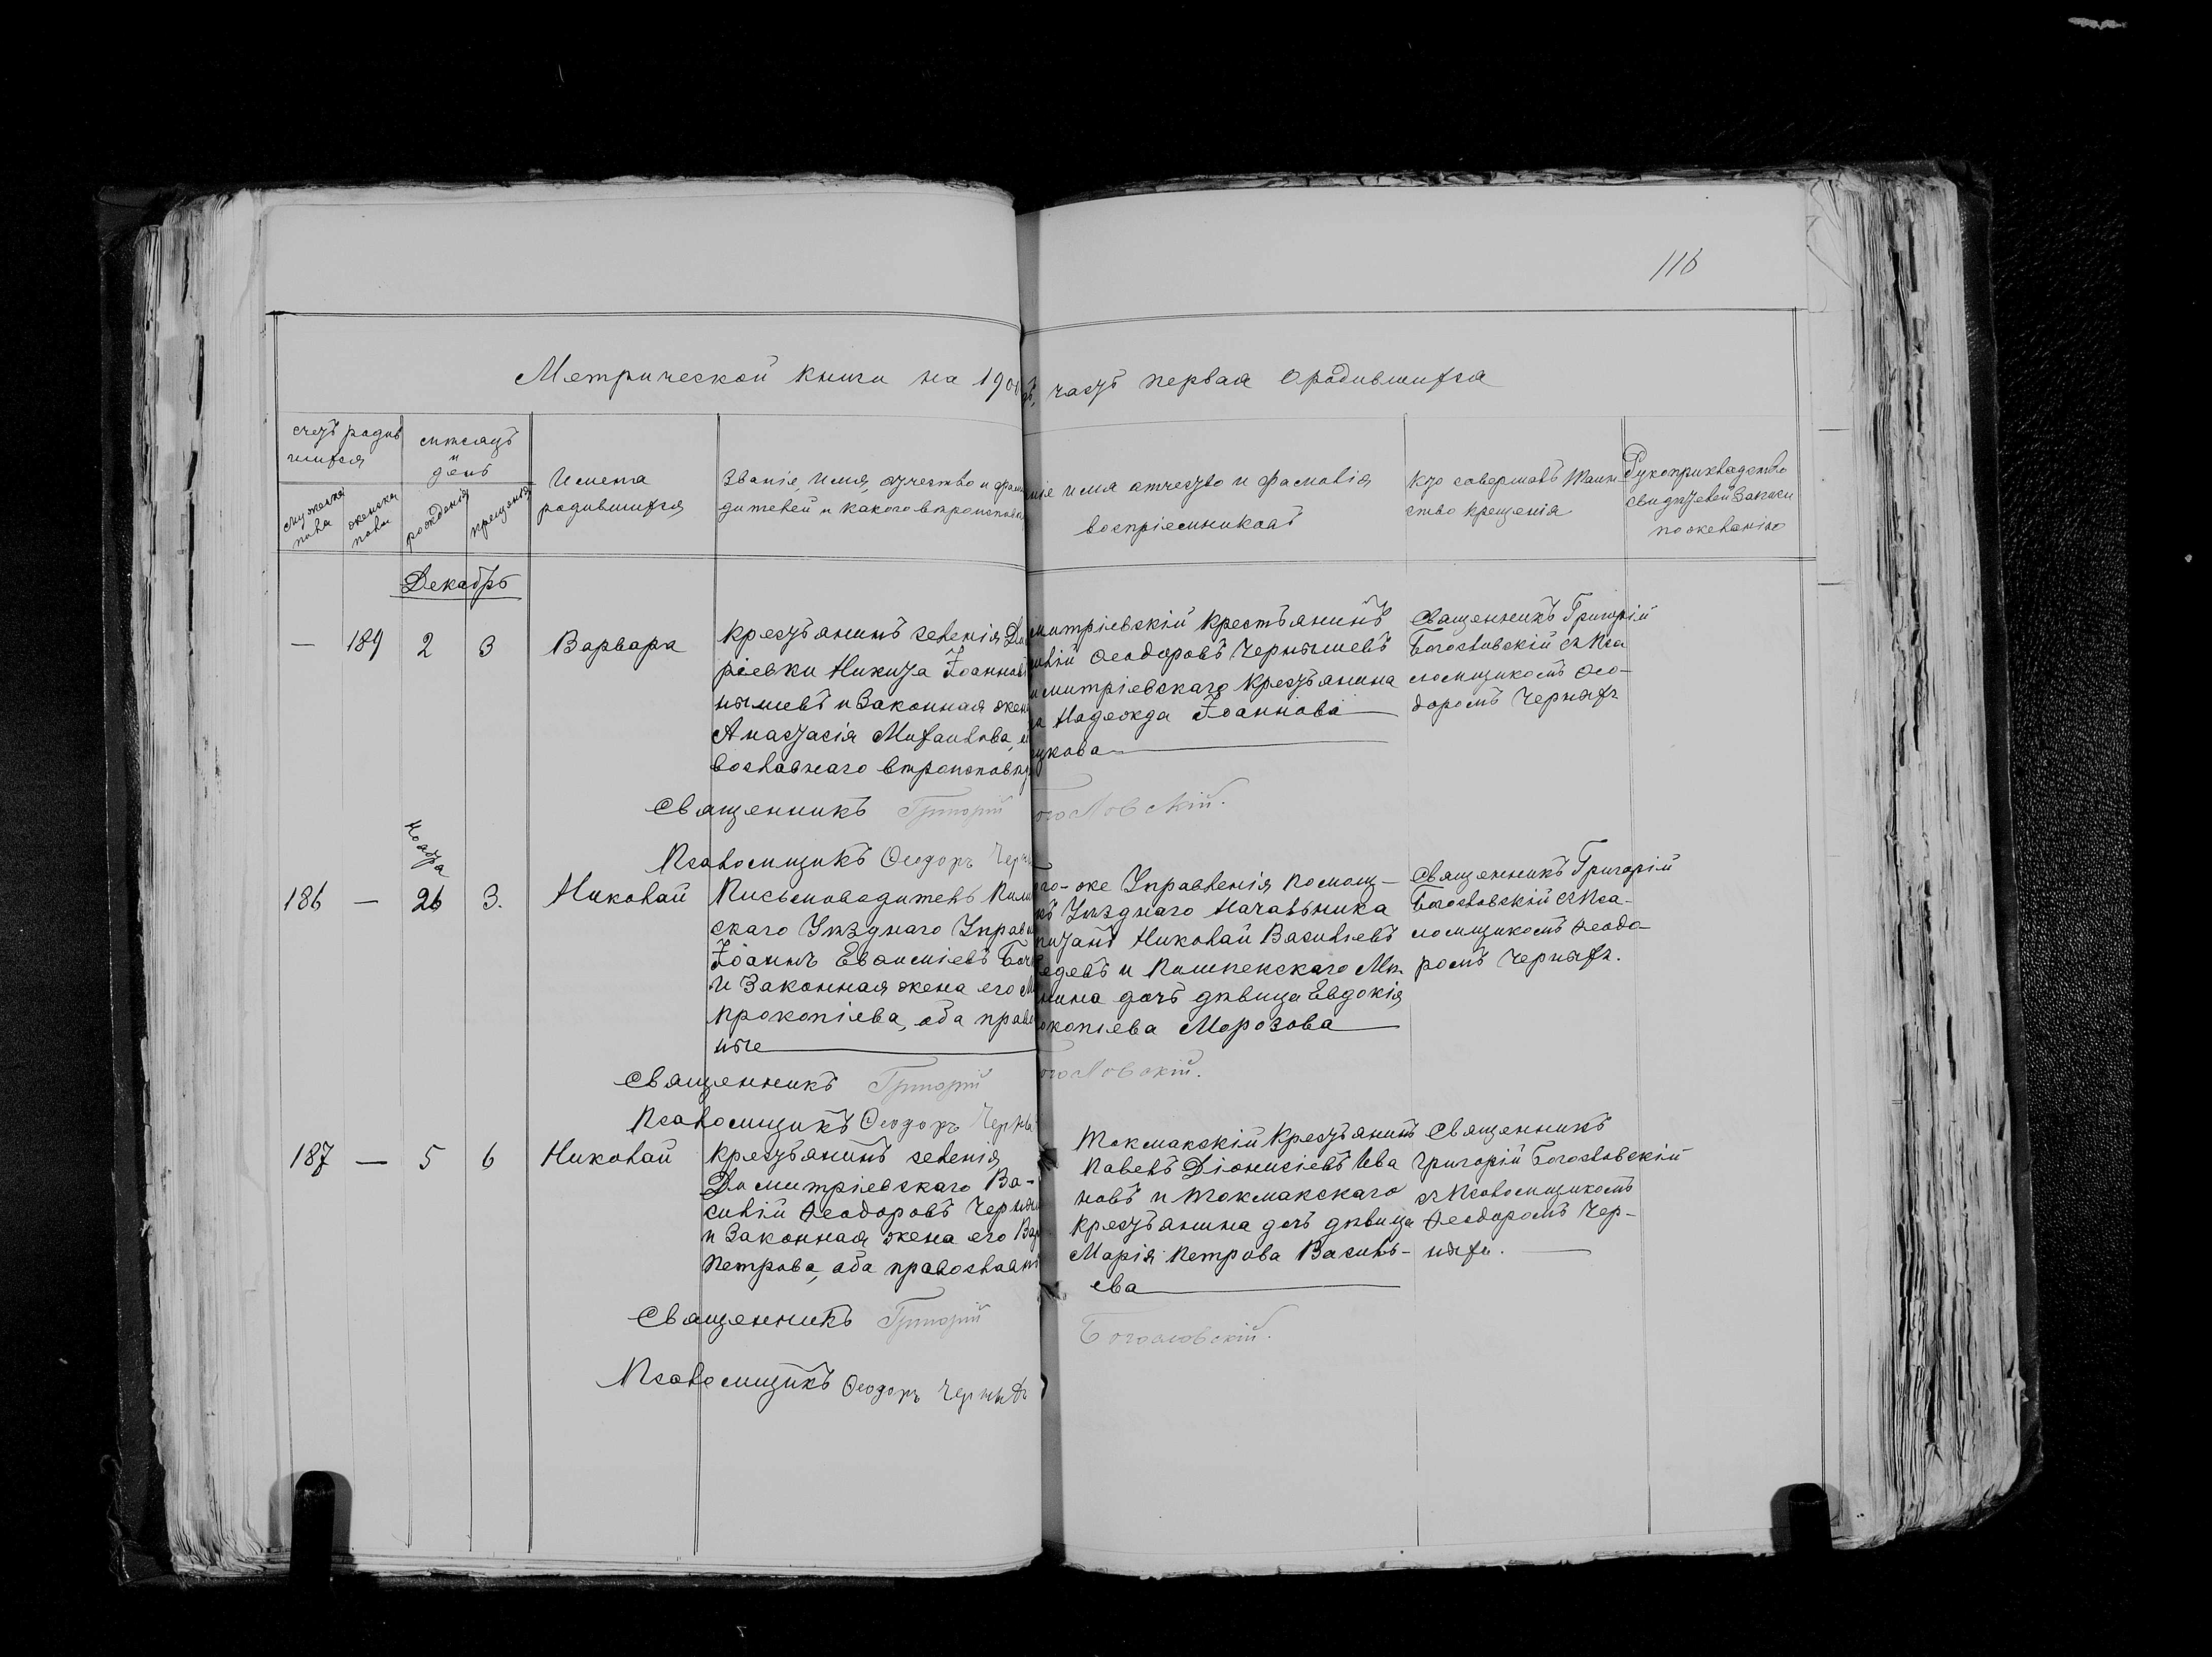 118
Метрической книги на 190 часть первая о родившихся
счетъ родив
шихся
мужеска
пола
женска
пола
мѣсяцъ
и
день
рожденія
крещенія
Имена
родившихся
Званіе, имя, отчество и
дителей и какого вѣроисповѣ
имя отчество и фамилія
воспріемниковъ
Кто совершалъ таин-
ство крещенія
Рукоприкладство
свидѣтелей записи
по желанію
Декабрь
— 189 2 3 Варвара
Крестьянинъ селенія Ди
ріевки Никита Іоанновъ
нышевъ и законная жена
Анастасія Михаилова,
вославнаго вѣроисповѣд
митріевскій крестьянинъ
Ѳеодоровъ Чернышевъ
митріевскаго крестьянина
Надежда Іоаннова
Священникъ Григорій
Богословскій съ Пса
ломщикомъ Ѳео-
доромъ Черныхъ
Священникъ Григорій огословскій.
Псаломщикъ Ѳеодоръ Черн
Ноября
186 — 26 3. Николай
Письмоводитель Пиш
скаго Уѣзднаго Управ
Іоаннъ Евѳиміевъ
и законная жена его
Прокопіева, оба право
ные
го-же Управленія Помощ-
къ Уѣзднаго Начальника
питанъ Николай Васильевъ
и Пишпекскаго Мѣ
нина дочь дѣвица Евдокія
окопіева Морозова
Священникъ Григорій
Богословскій съ Пса-
ломщикомъ Ѳеодо-
ромъ Черныхъ.
Священникъ Григорій огословскій.
Псаломщикъ Ѳеодоръ Черны
187 — 5 6 Николай
Крестьянинъ селенія
Димитріевскаго Ва-
силій Ѳеодоровъ Черны
и законная жена его Вар
Петрова, оба православн
Токмакскій крестьянинъ
Павелъ Діонисіевъ Ива
новъ и Токмакскаго
крестьянина дочь дѣвица
Марія Петрова Василь-
ева
Священникъ
Григорій Богословскій
съ Псаломщикомъ
Ѳеодоромъ Чер-
ныхъ.
Священникъ Григорій Богословскій.
Псаломщикъ Ѳеодоръ Черныхъ